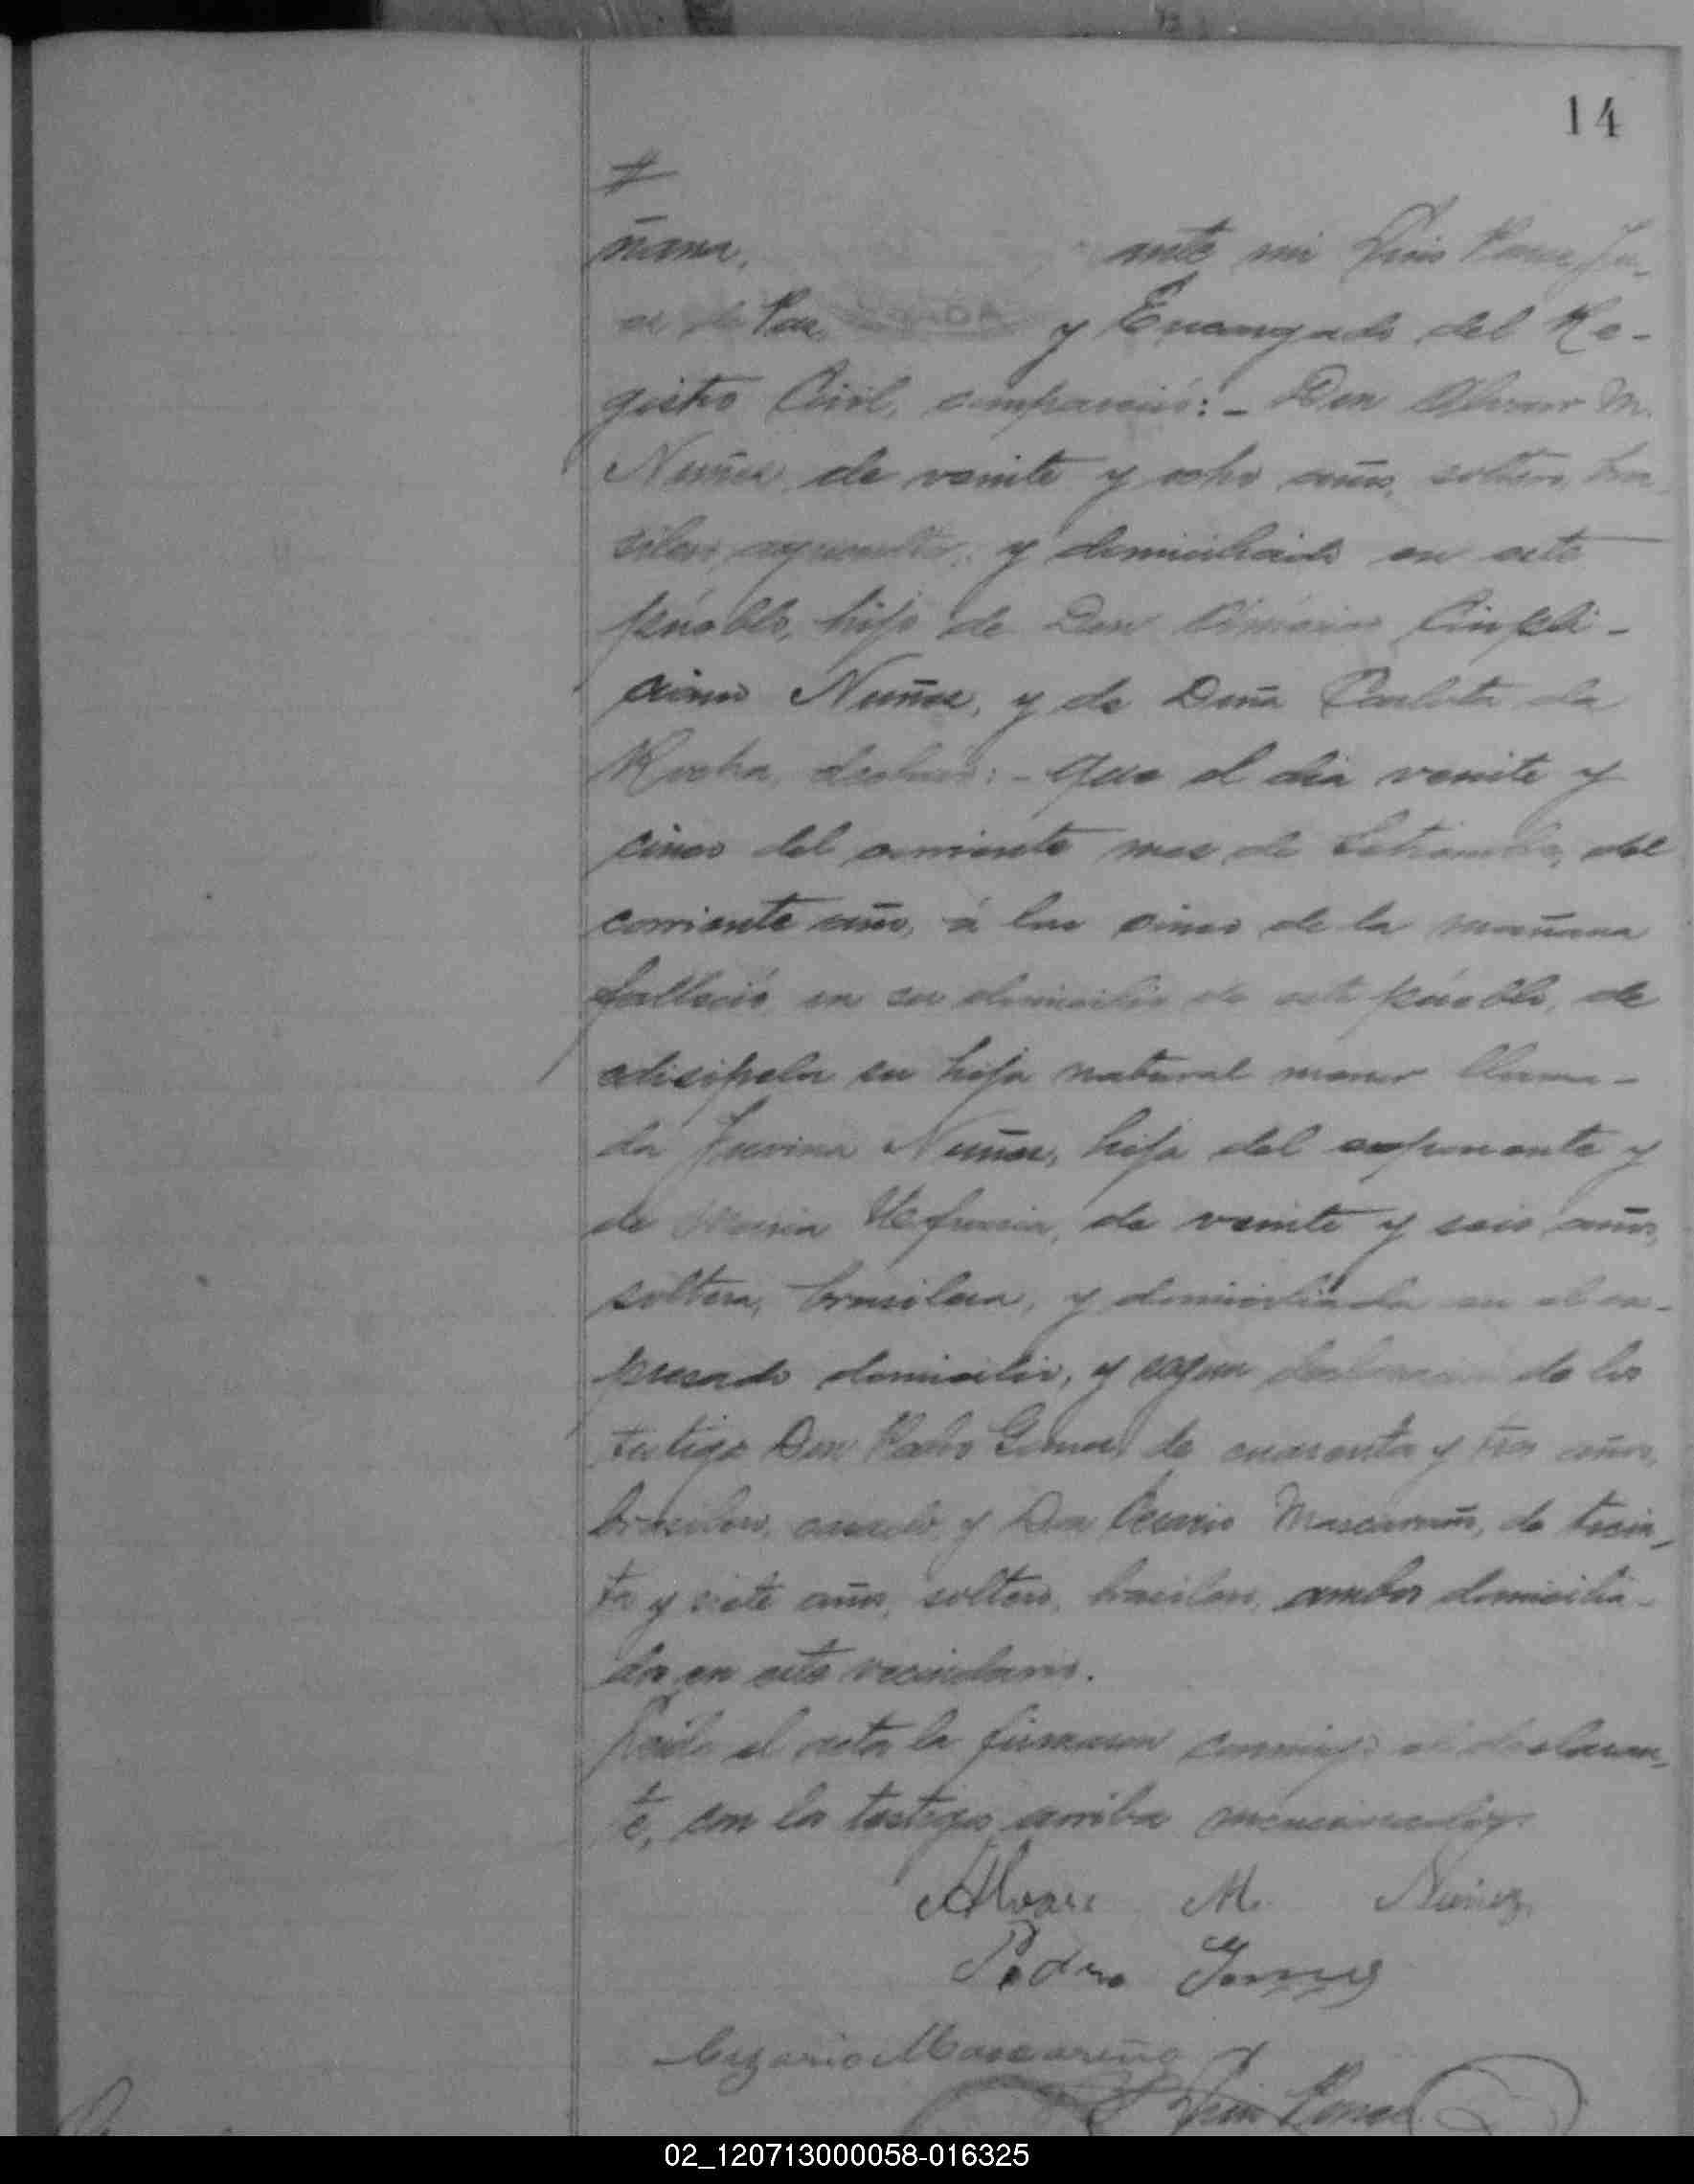 14
ñana, ante mi Luis Ponce, Ju-
ez de Paz y Encargado del Re-
gistro Civil, compareció:- Don Alvaro M.
Nuñez, de veinte y ocho años, soltero, bra-
silero, y domiciliado en este
pueblo, hijo de Don Cinpli-
ciano Nuñez, y de Doña Carlota da
Rocha, declaró:- Que el dia veinte y
cinco del corriente mes de Setiembre, del
corriente año, á las cinco de la mañana
falleció en su domicilio de este pueblo, de
edisipela su hija natural menor llama-
da Juvina Nuñez, hija del exponente y
de Maria de veinte y seis años,
soltera, brasilera, y domiciliada en el ex-
presado domicilio, y segun declaracion de los
testigos Don Pedro Gomes, de cuarenta y tres años,
brasilero, casado y Don Cesario Mascareño, de trein-
ta y siete años, soltero, brasilero, ambos domicilia-
dos en este vecindario.
Leida el acta la firmaron conmigo el declaran-
te, con los testigos arriba mencionados.
Alvaro M. Nuñez
Pedro Gomes
Cezario Mascareño
Luis Ponce
02_120713000058-016325